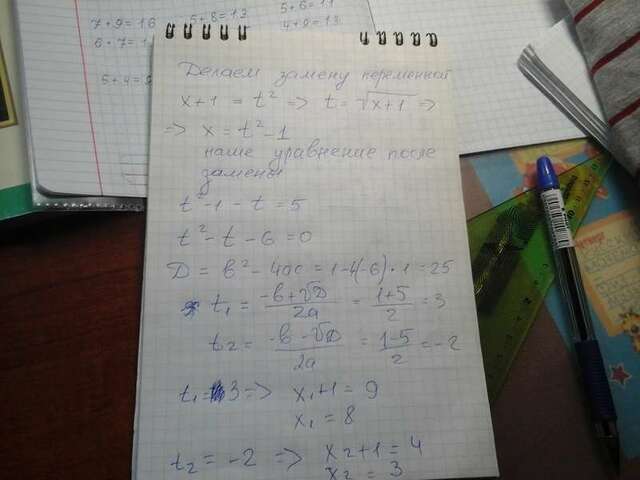 7+9=16
6+7=1
5+4=9
5+8=13
5+6=11
4+9=13
Делаем замену переменной
x+1 = t² => t = √x+1 =>
=> x = t²-1
наше уравнение после
замены
t²-1-t=5
t²-t-6=0
D = b²-4ac = 1-4(-6)·1=25
t₁ = -b+√D/2a = 1+5/2 = 3
t₂ = -b-√D/2a = 1-5/2 = -2
t₁=3 => x₁+1=9
x₁=8
t₂=-2 => x₂+1=4
x₂=3